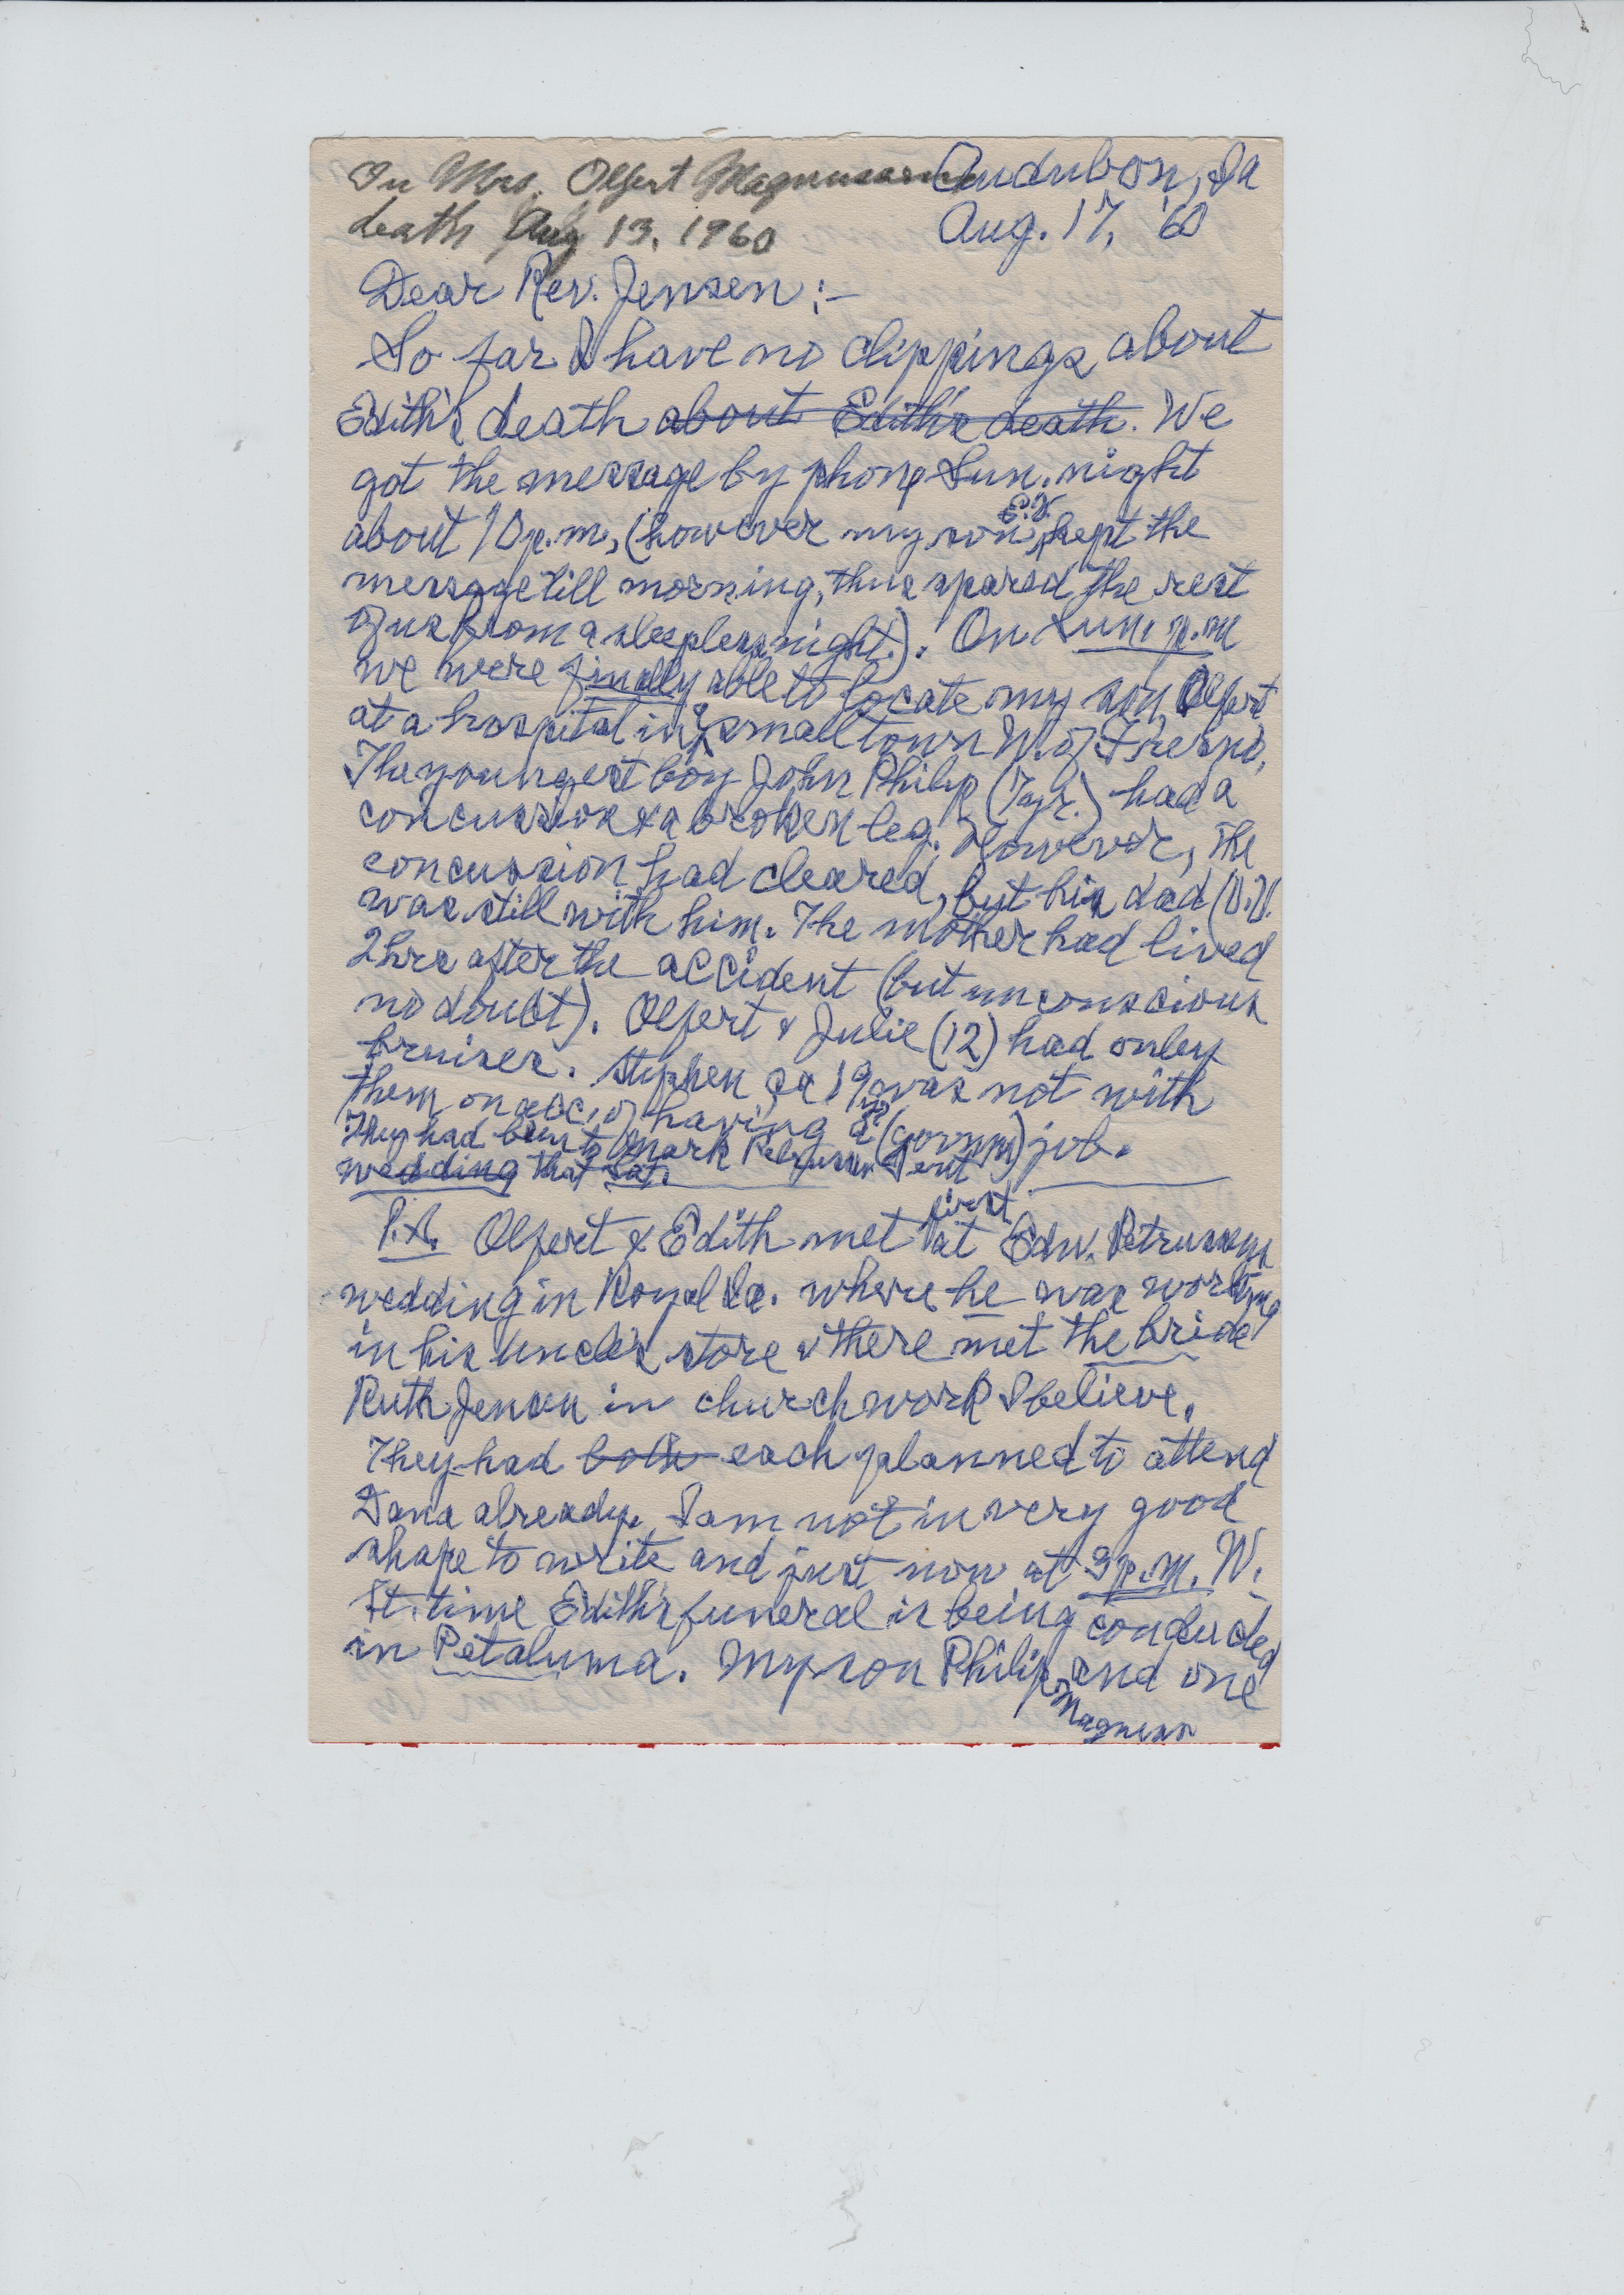 On Mrs. Olfert Magnussens
death Aug 13, 1960
Audubon, Ia
Aug. 17, '60
Dear Rev. Jensen:-
So far I have no clippings about
Edith's death about Edith's death. We
got the message by phone Sun. night
about 10 p.m, (however my son kept the
message till morning, thus spared the rest
of us from a sleepless night.). On
we were finally able to locate my son Olfert
at a hospital in a small town W. of Fresno,
The youngest boy John Philip (7 yr.) had a
concussion & a broken leg. However, the
concussion had cleared, but his dad
was still with him. The mother had lived
2 hrs after the accident (but unconscious
no doubt). Olfert & Julie (12) had only
bruises. Stephen 19 was not with
them on acc. of having a job.
They had been to Mark
wedding that Sat.
P.S. Olfert & Edith met first at Edw. Petrusen
wedding in Royal Ia. where he was working
in his uncle's store & there met the bride
Ruth Jensen in church work I believe.
They had both each planned to attend
Dana already. I am not in very good
shape to write and just now at p.m. W.
St. time Edith's funeral is being conducted
in Petaluma. My son Philip and one
Magnuss